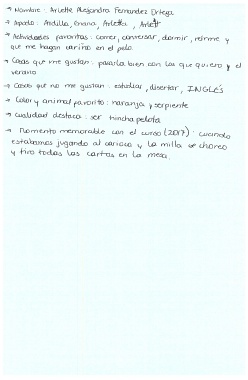 → Nombre: Arlette Alejandra Fernandez Ortega
→ Apodo: Ardilla, Enana, Arletta, Arlett
→ Actividades favoritas: comer, conversar, dormir, reirme y
que me hagan cariño en el pelo.
→ Cosas que me gustan: pasarla bien con los que quiero y el
verano
→ Cosas que no me gustan: estudiar, disertar, INGLÉS
→ Color y animal favorito: naranja y serpiente
→ Cualidad destaca: ser hincha pelota
→ Momento memorable con el curso (2017): cuando
estabamos jugando al carioca y la milla se choreo
y tiro todas las cartas en la mesa.